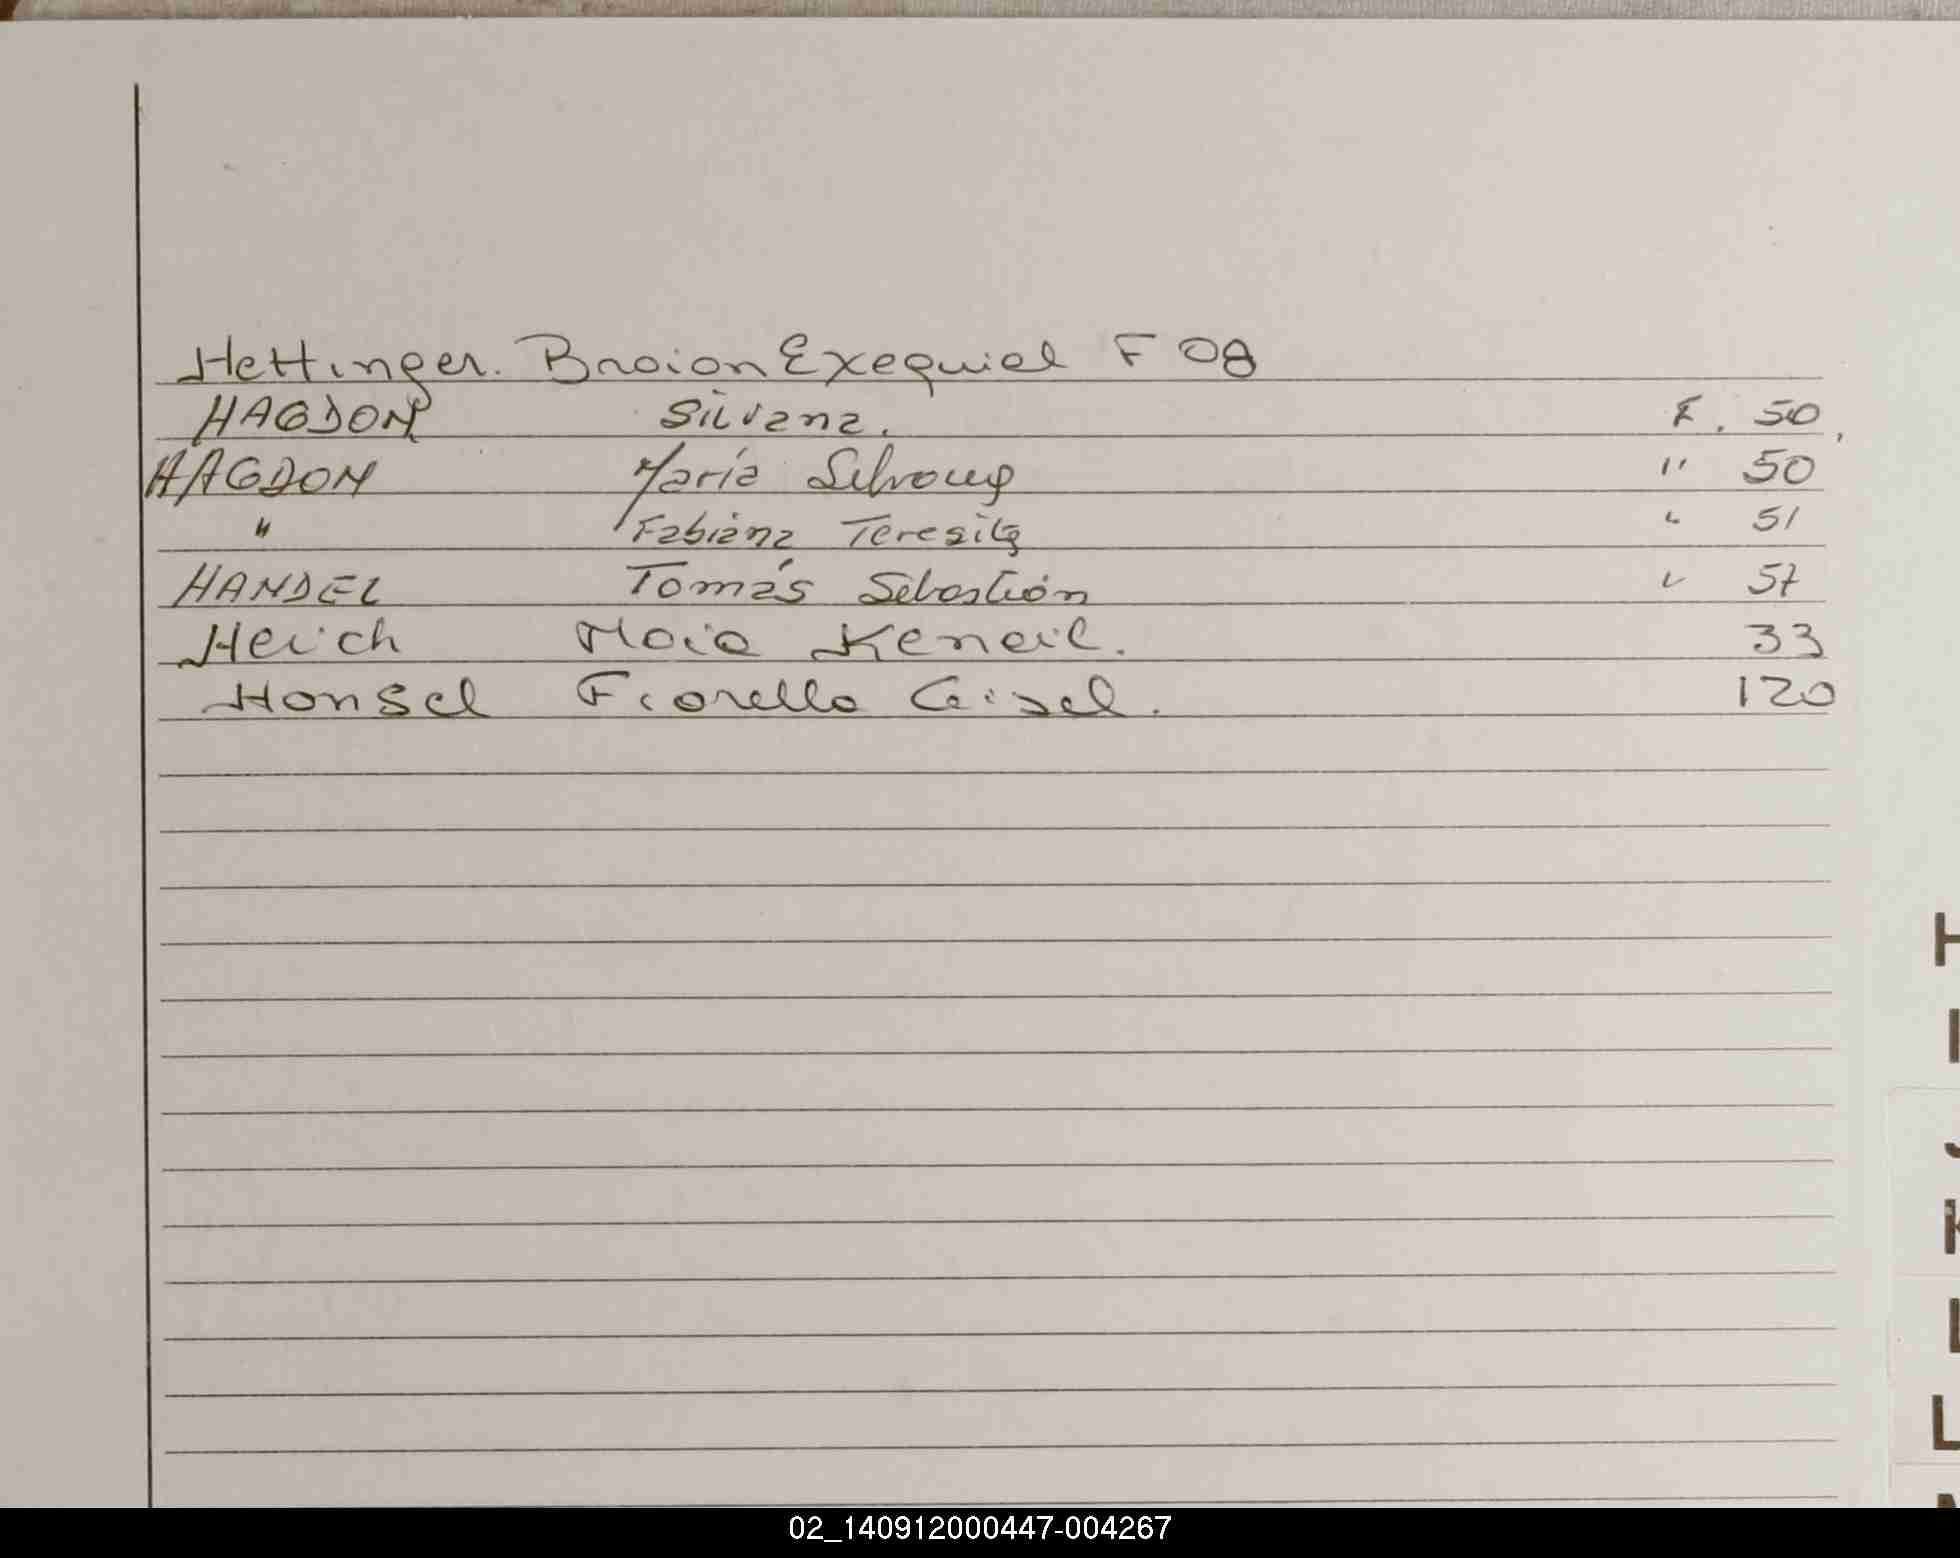 Hettinger. Braian Exequiel F 08
HAGDON Silvana. F. 50,
HAGDON María Silvana " 50
" Fabiana Teresita " 51
HANDEL Tomás Sebastián " 57
Heich Maia 33
Honsel Fiorella Gisel. 120
H
I
J
K
L
L
02_140912000447-004267